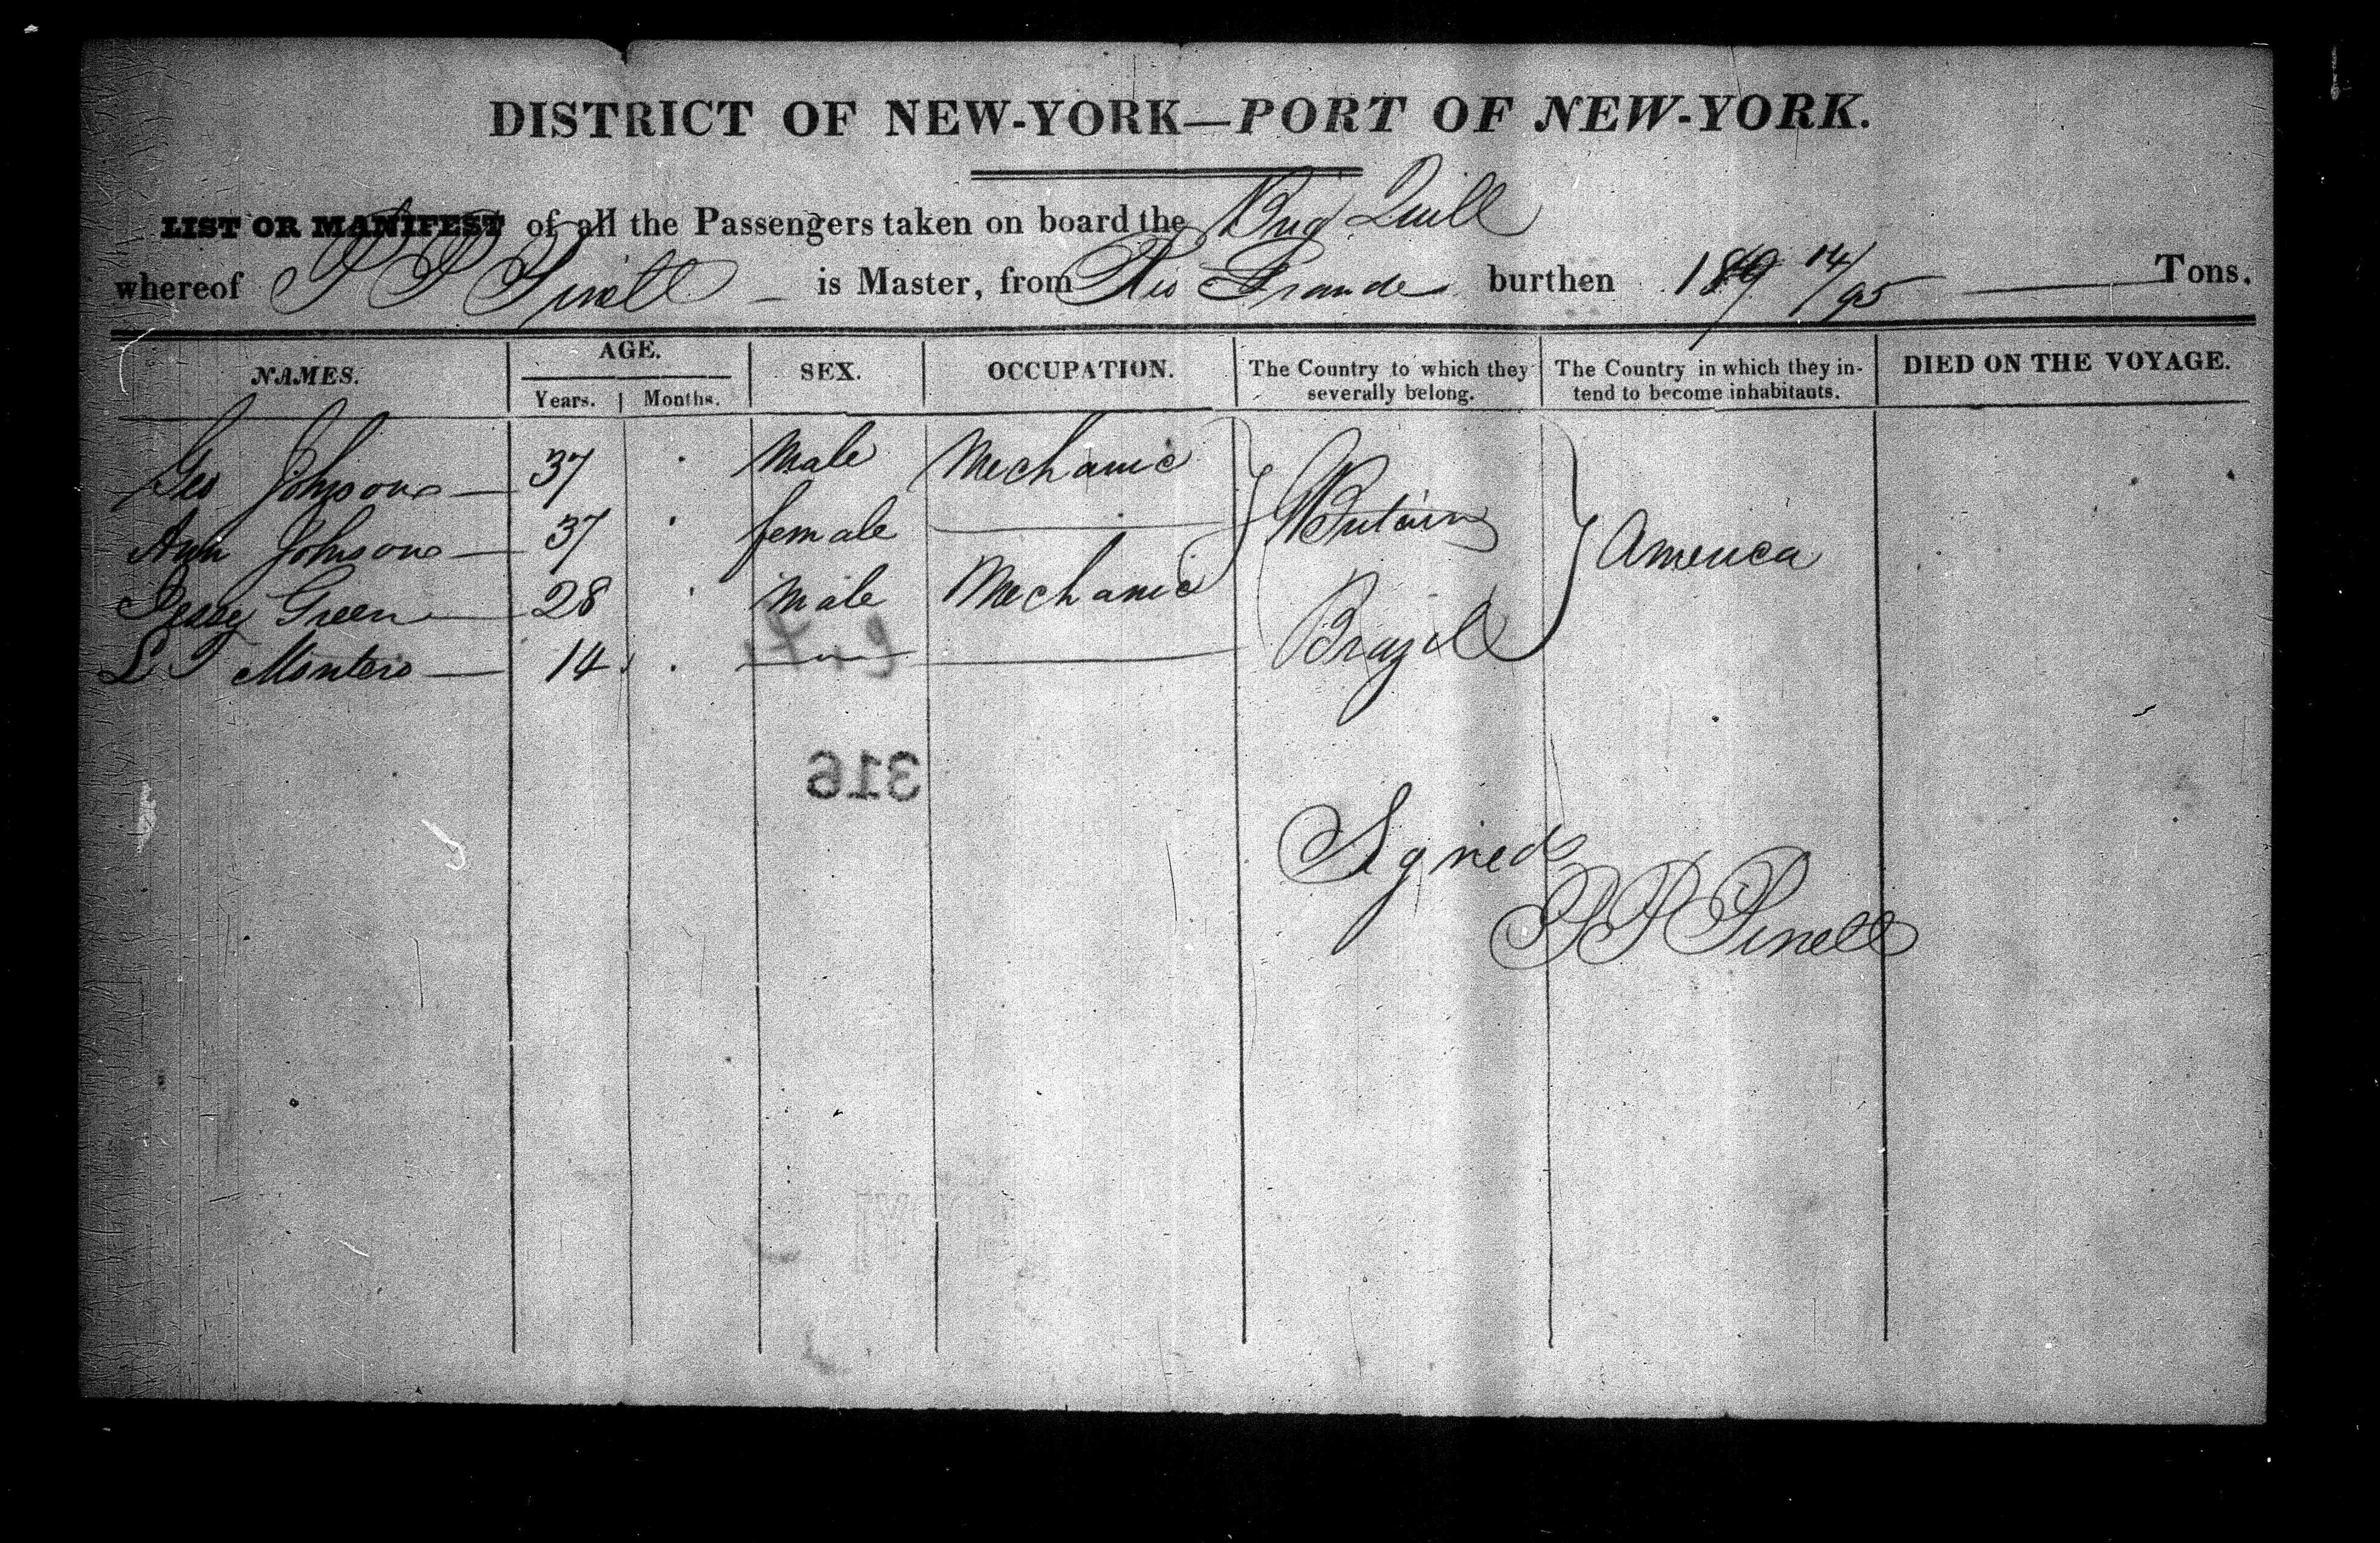 DISTRICT OF NEW-YORK—PORT OF NEW-YORK.
LIST OR MANIFEST of all the Passengers taken on board the Brig Quill
whereof is Master, from Rio Grande burthen 14/95 Tons.
NAMES. AGE. SEX. OCCUPATION. The Country to which they severally belong. The Country in which they intend to become inhabitants. DIED ON THE VOYAGE.
Years. Months.
Geo Johnson 37 Male Mechanic
Ann Johnson 37 female G Britain America
Green 28 Male Mechanic
L Montero 14 Brazil
316
Signed